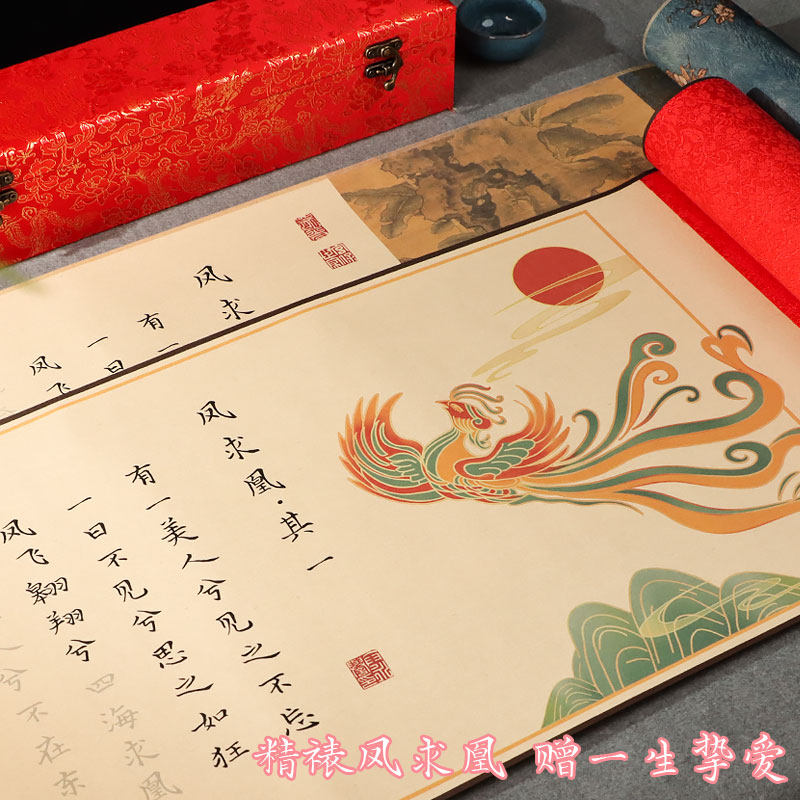 凤求
有一
一日
凤飞
凤求凰·其一
有一美人兮见之不忘
一日不见兮思之如狂
凤飞翱翔兮
四海求凰
人兮不在东
精裱凤求凰 赠一生挚爱